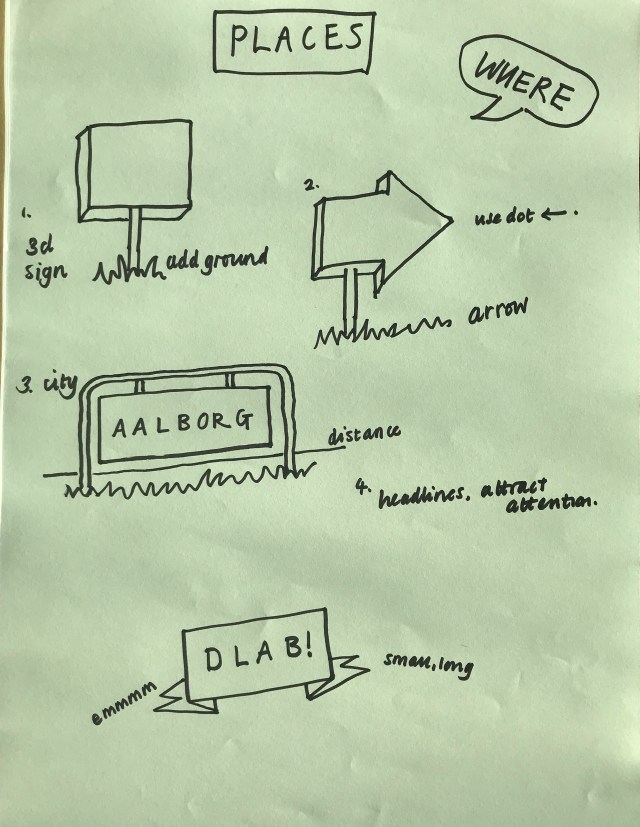 PLACES
WHERE
1.
3d
sign
add ground
2.
use dot ← .
arrow
3. city
AALBORG
distance
4. headlines. attract
attention.
DLAB!
emmmm
small, long